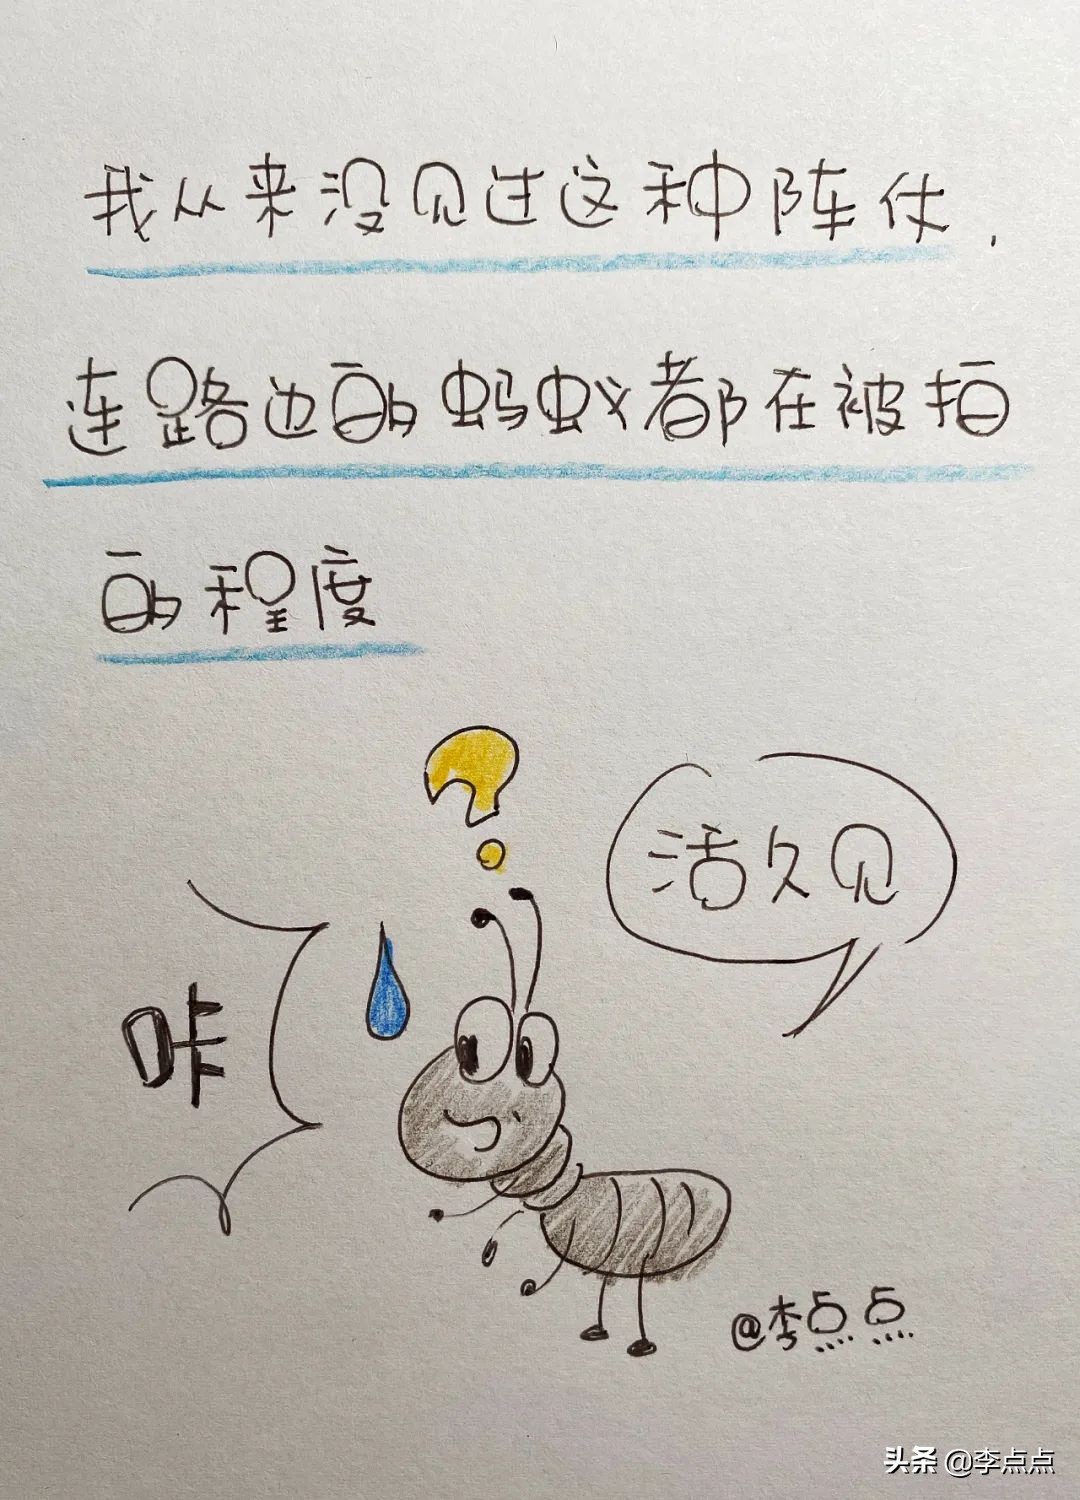 我从来没见过这种阵仗,
连路边的蚂蚁都在被拍
的程度
活久见
咔
@李点点
头条 @李点点